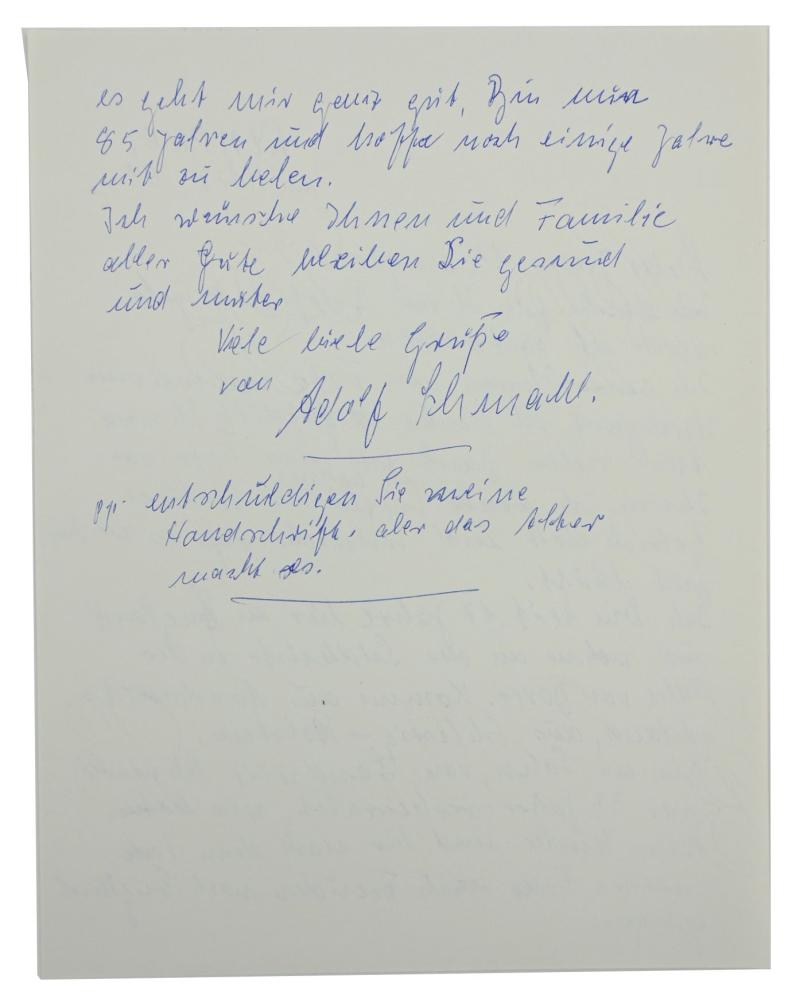 es geht mir ganz gut, Bin nun
85 Jahren und hoffe noch einige Jahre
mit zu leben.
Ich wünsche Ihnen und Familie
alles Gute bleiben Sie gesund
und munter
Viele liebe Grüße
von Adolf Schmahl.
entschuldigen Sie meine
Handschrift. aber das Alter
macht es.